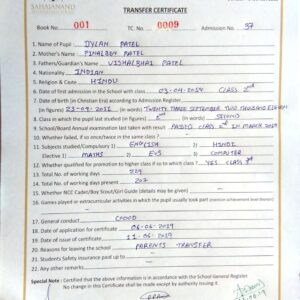 SAHAJANAND
TRANSFER CERTIFICATE
Book No. 001 TC. No. 0009 Admission No. 37
1. Name of Pupil DYLAN PATEL
2. Mother's Name PINALBEN PATEL
3. Fathers/Guardian's Name VISHALBHAI PATEL
4. Nationality INDIAN
5. Religion & Caste HINDU
6. Date of first admission in the School with class 03-04-2017 CLASS 2nd
7. Date of birth (in Christian Era) according to Admission Register
(in figures) 23-09-2011 (in words) TWENTY THREE SEPTEMBER TWO THOUSAND
8. Class in which the pupil last studied (in figures) (in words) SECOND
9. School/Board Annual examination last taken with result PASSED CLASS 2nd IN MARCH 2019
10. Whether failed, if so once/twice in the same class ?
11. Subjects studied/Compulsory 1) ENGLISH 3) HINDI
Elective ) MATHS EVS COMPUTER
12. Whether qualified for promotion to higher class if so to which class ? YES CLASS 3rd
13. Total No. of working days 224
14. Total No. of working days present 207
15. Whether NCC Cadet/Boy Scout/Girl Guide (details may be given)
16. Games played or extracurricular activities in which the pupil usually took part (mention achievement level thereon)
17. General conduct GOOD
18. Date of application for certificate 06-06-2019
19. Date of issue of certificate 11-06-2019
20. Reasons for leaving the school PARENTS TRANSFER
21. Students Safety insurance paid up to
22. Any other remarks
Special Note : Certified that the above information is in accordance with the School General Register.
No change in this Certificate shall be made except by authority issuing it